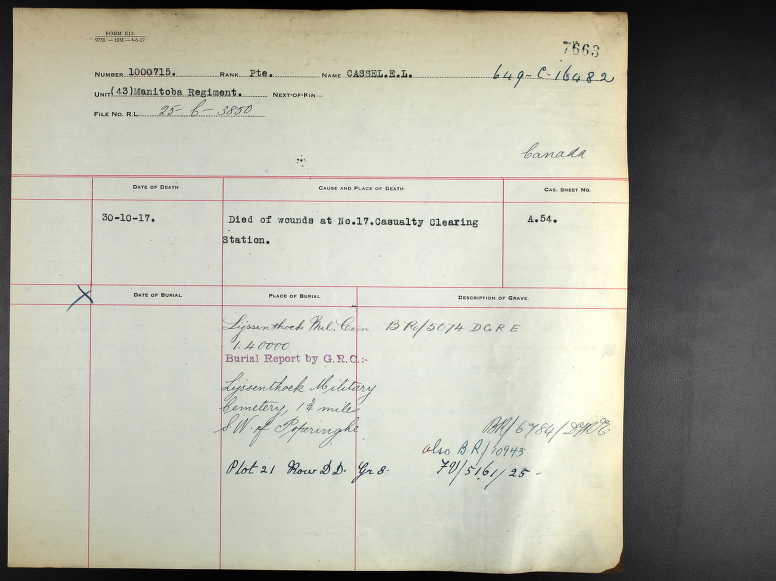 FORM
7663
NUMBER 1000715. RANK Pte. NAME CASSEL.E.L. 649-C-16482
UNIT (43)Manitoba Regiment. NEXT-OF-KIN
FILE NO. R.L. 25-C-3850
Canada
DATE OF DEATH CAUSE AND PLACE OF DEATH CAS. SHEET NO.
30-10-17. Died of wounds at No.17.Casualty Clearing A.54.
Station.
X DATE OF BURIAL. PLACE OF BURIAL DESCRIPTION OF GRAVE.
Lijssenthoek Mil. Cem BR/5074 DGRE
1.40000
Burial Report by G.R.C.:-
Lyssenthoek Military
Cemetery, 1¾ miles
S W. of Poperinghe.
BR/6784/
also BR/10943
Plot 21 Row DD. Gr 8. 7V/5161/25 -